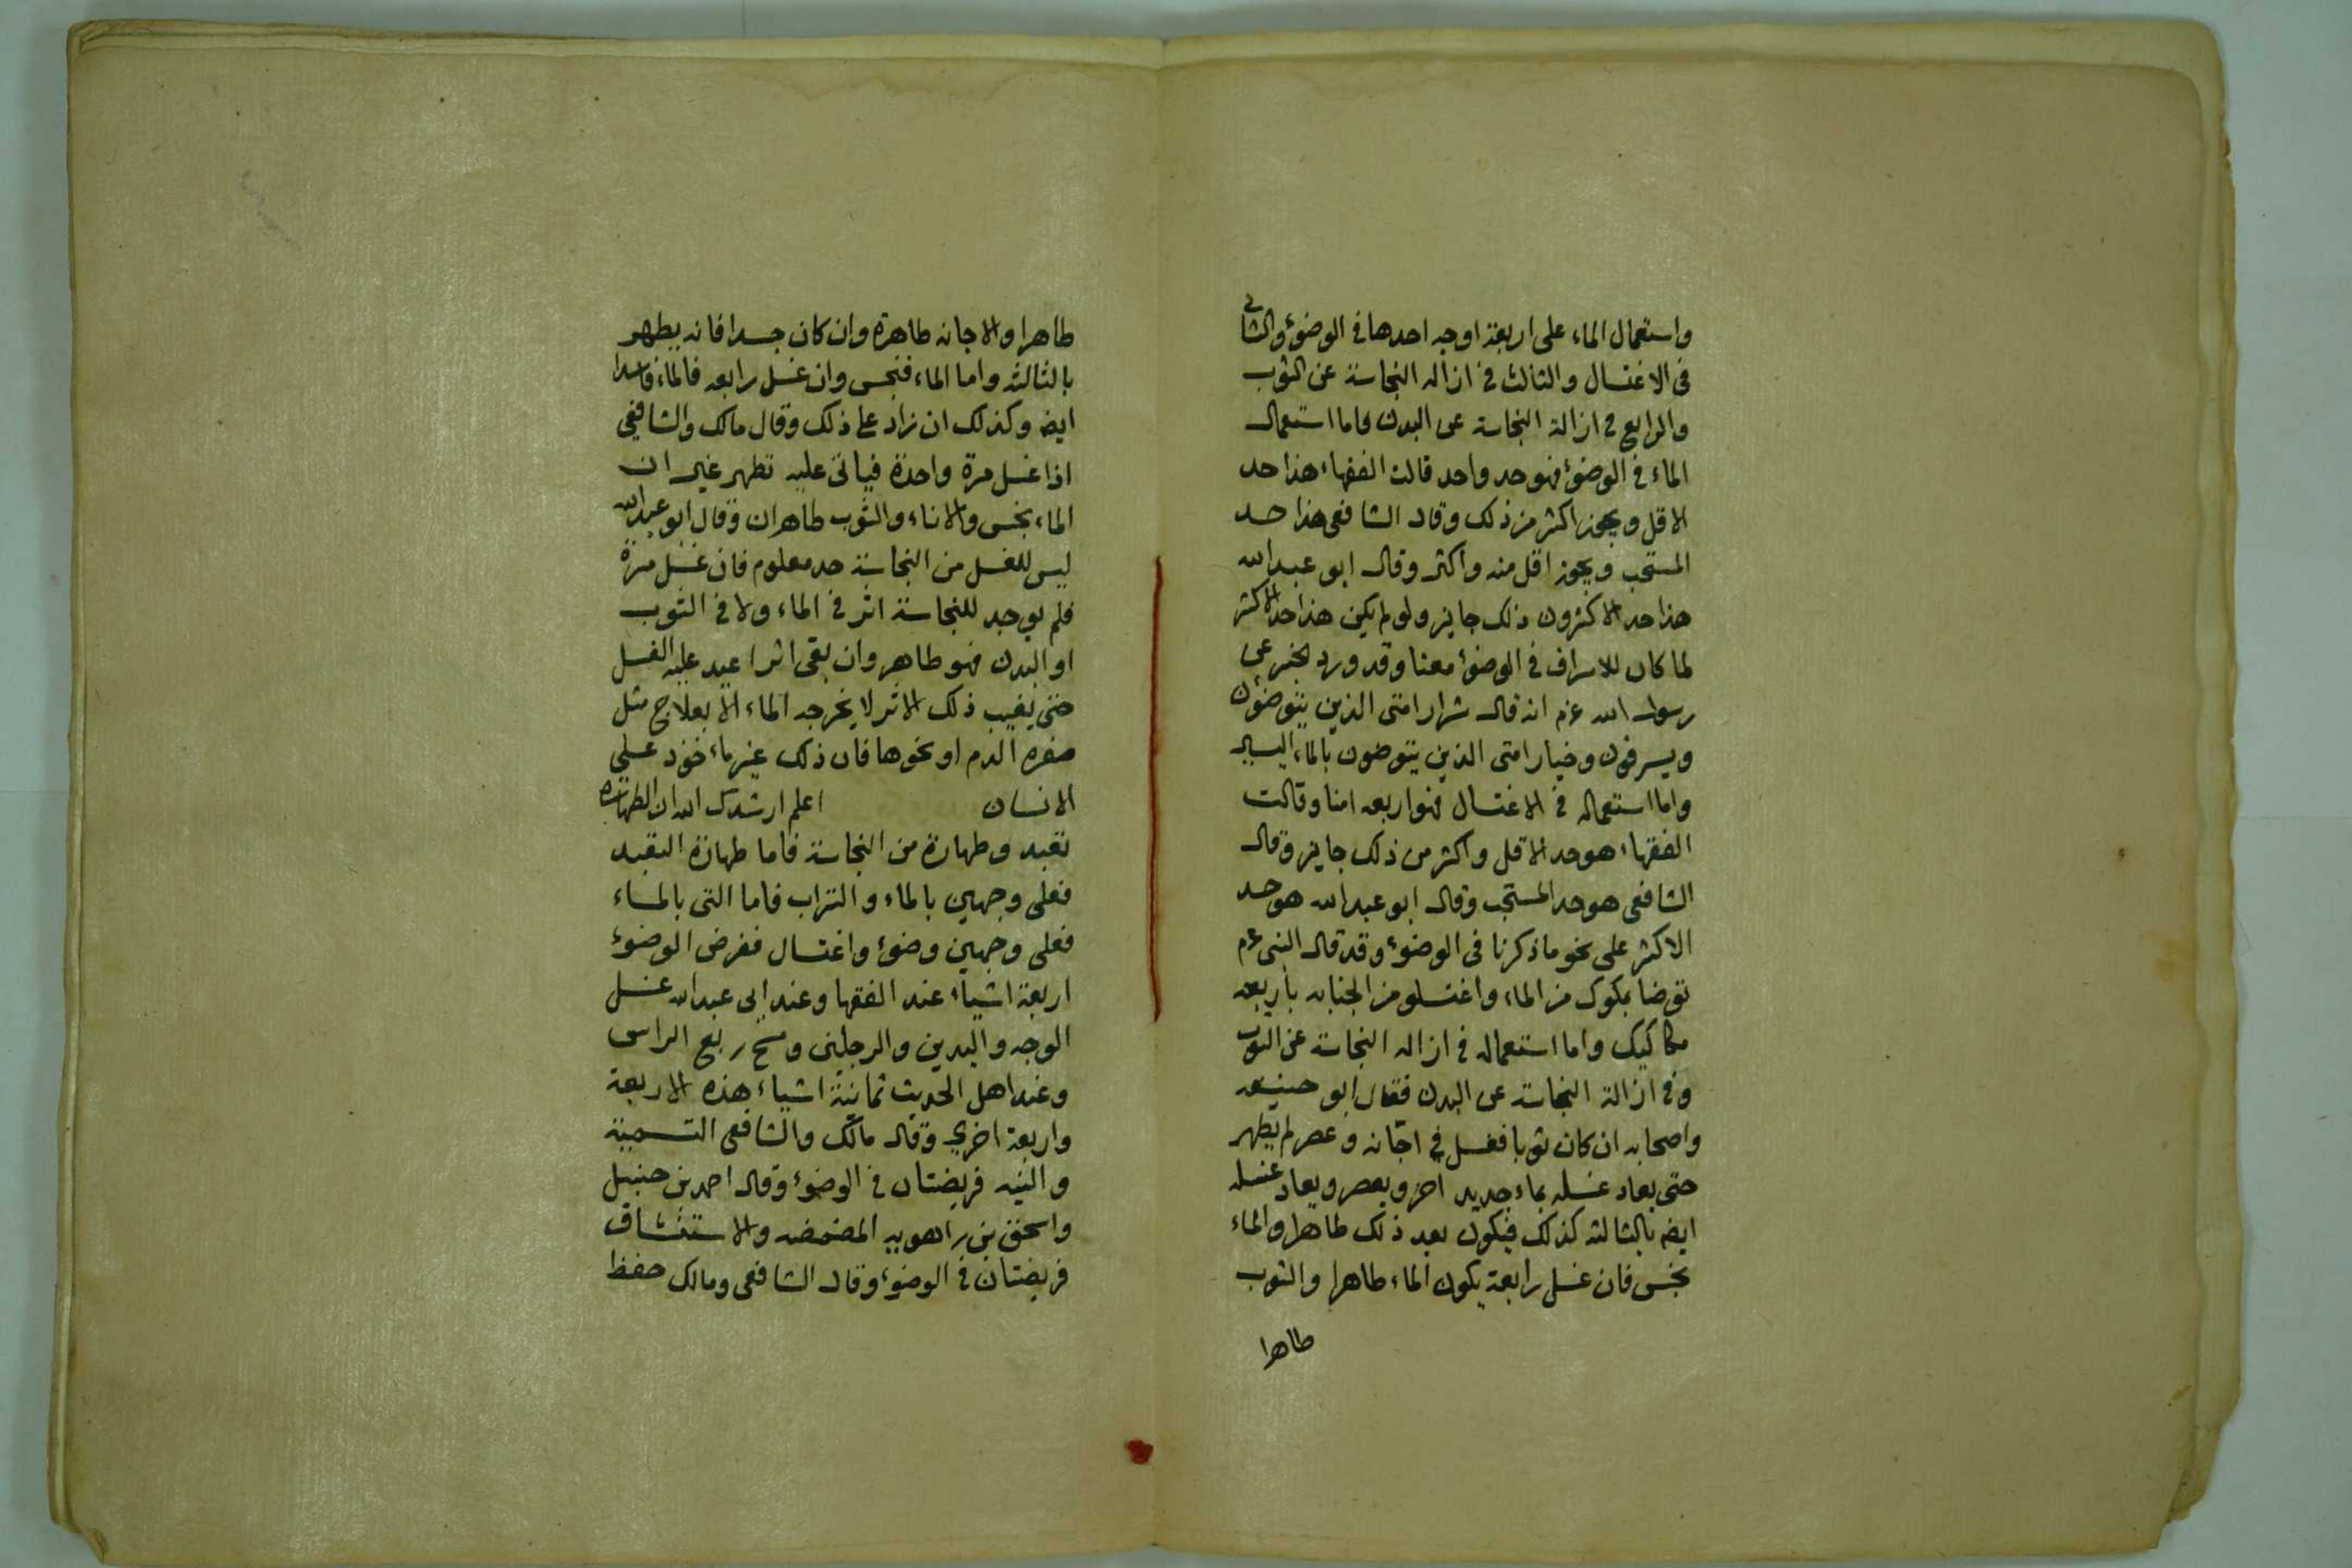 واستعمال الماء على اربعة اوجه احدها في الوضوء والثاني
في الاغتسال والثالث في ازاله النجاسة عن الثوب
والرابع في ازالة النجاسة عن البدن فاما استعمال
الماء في الوضوء فهو حد واحد قالت الفقهاء هذا حد
الاقل ويجوز اكثر من ذلك وقال الشافعي هذا حد
المستحب ويجوز اقل منه واكثر وقال ابو عبدالله
هذا حد الاكثر ودون ذلك جايز ولو لم يكن هذا حد الاكثر
لما كان للاسراف في الوضوء معنا وقد ورد الخبر عن
رسول الله عم انه قال شرار امتي الذين يتوضون
ويسرفون وخيار امتي الذين يتوضون بالماء اليسير
واما استعماله في الاغتسال فهو اربعه امنا وقالت
الفقهاء هو حد الاقل واكثر من ذلك جايز وقال
الشافعي هو حد المستحب وقال ابو عبدالله هو حد
الاكثر على نحو ما ذكرنا في الوضوء وقد قال النبي عم
توضا بمكوك من الماء واغتسلو من الجنابه باربعه
مكاكيك واما استعماله في ازاله النجاسة عن الثوب
وفي ازالة النجاسة عن البدن فقال ابو حنيفه
واصحابه ان كان ثوبا فغسل في اجّانه وعصر لم يطهر
حتى يعاد غسله بماء جديد اخر ويعصر ويعاد غسله
ايضه بالثالثه كذلك فيكون بعد ذلك طاهرا والماء
نجس فان غسل رابعة يكون الماء طاهرا والثوب
طاهرا
طاهرا والاجانه طاهرة وان كان جسدا فانه يطهر
بالثالثه واما الماء فنجس وان غسل رابعه فالماء فاسدا
ايضه وكذلك ان زاد على ذلك وقال مالك والشافعي
اذا غسل مرة واحدة فياتي عليه تطهر غير ان
الماء نجس والاناء والثوب طاهران وقال ابو عبدالله
ليس للغسل من النجاسة حد معلوم فان غسل مرة
فلم يوجد للنجاسة اثر في الماء ولا في الثوب
او البدن فهو طاهر وان بقى اثر اعيد عليه الغسل
حتى يغيب ذلك الاثر لا يخرجه الماء الا بعلاج مثل
صفره الدم او نحوها فان ذلك غير ماخوذ على
الانسان اعلم ارشدك الله ان الطهارة
تعبد وطهارة من النجاسة فاما طهارة التعبد
فعلى وجهين بالماء والتراب فاما التي بالماء
فعلى وجهين وضوء واغتسال ففرض الوضوء
اربعة اشياء عند الفقها وعند ابي عبدالله غسل
الوجه واليدين والرجلين ومسح ربع الراس
وعند اهل الحديث ثمانية اشياء هذه الاربعة
واربعة اخرى وقال مالك والشافعي التسمية
والنيه فريضتان في الوضوء وقال احمد بن حنبل
واسحق بن راهويه المضمضه والاستنشاق
فريضتان في الوضوء وقال الشافعي ومالك حفظ